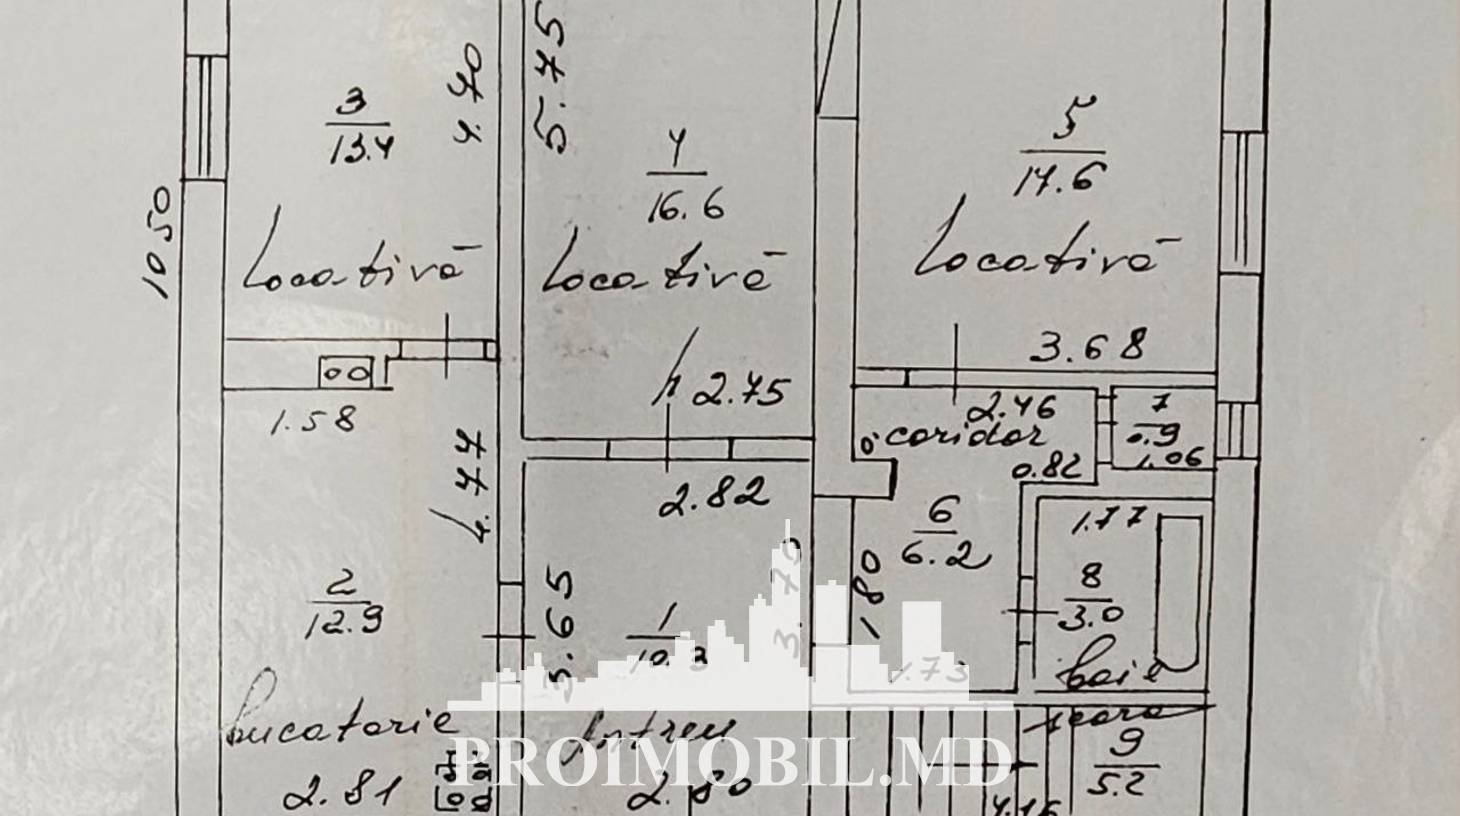 3
13.4
4.70
5.75
4
16.6
5
17.6
10.50
Locativă
Locativă
Locativă
3.68
h 2.75
1.58
4.77
2.82
2.46
coridor
0.82
7
0.9
1.06
6
6.2
1.77
8
3.0
1.80
2
12.9
3.65
1
10.3
3.75
1.73
baie
bucatarie
Antreu
scara
9
5.2
PROIMOBIL.MD
2.81
2.80
4.16